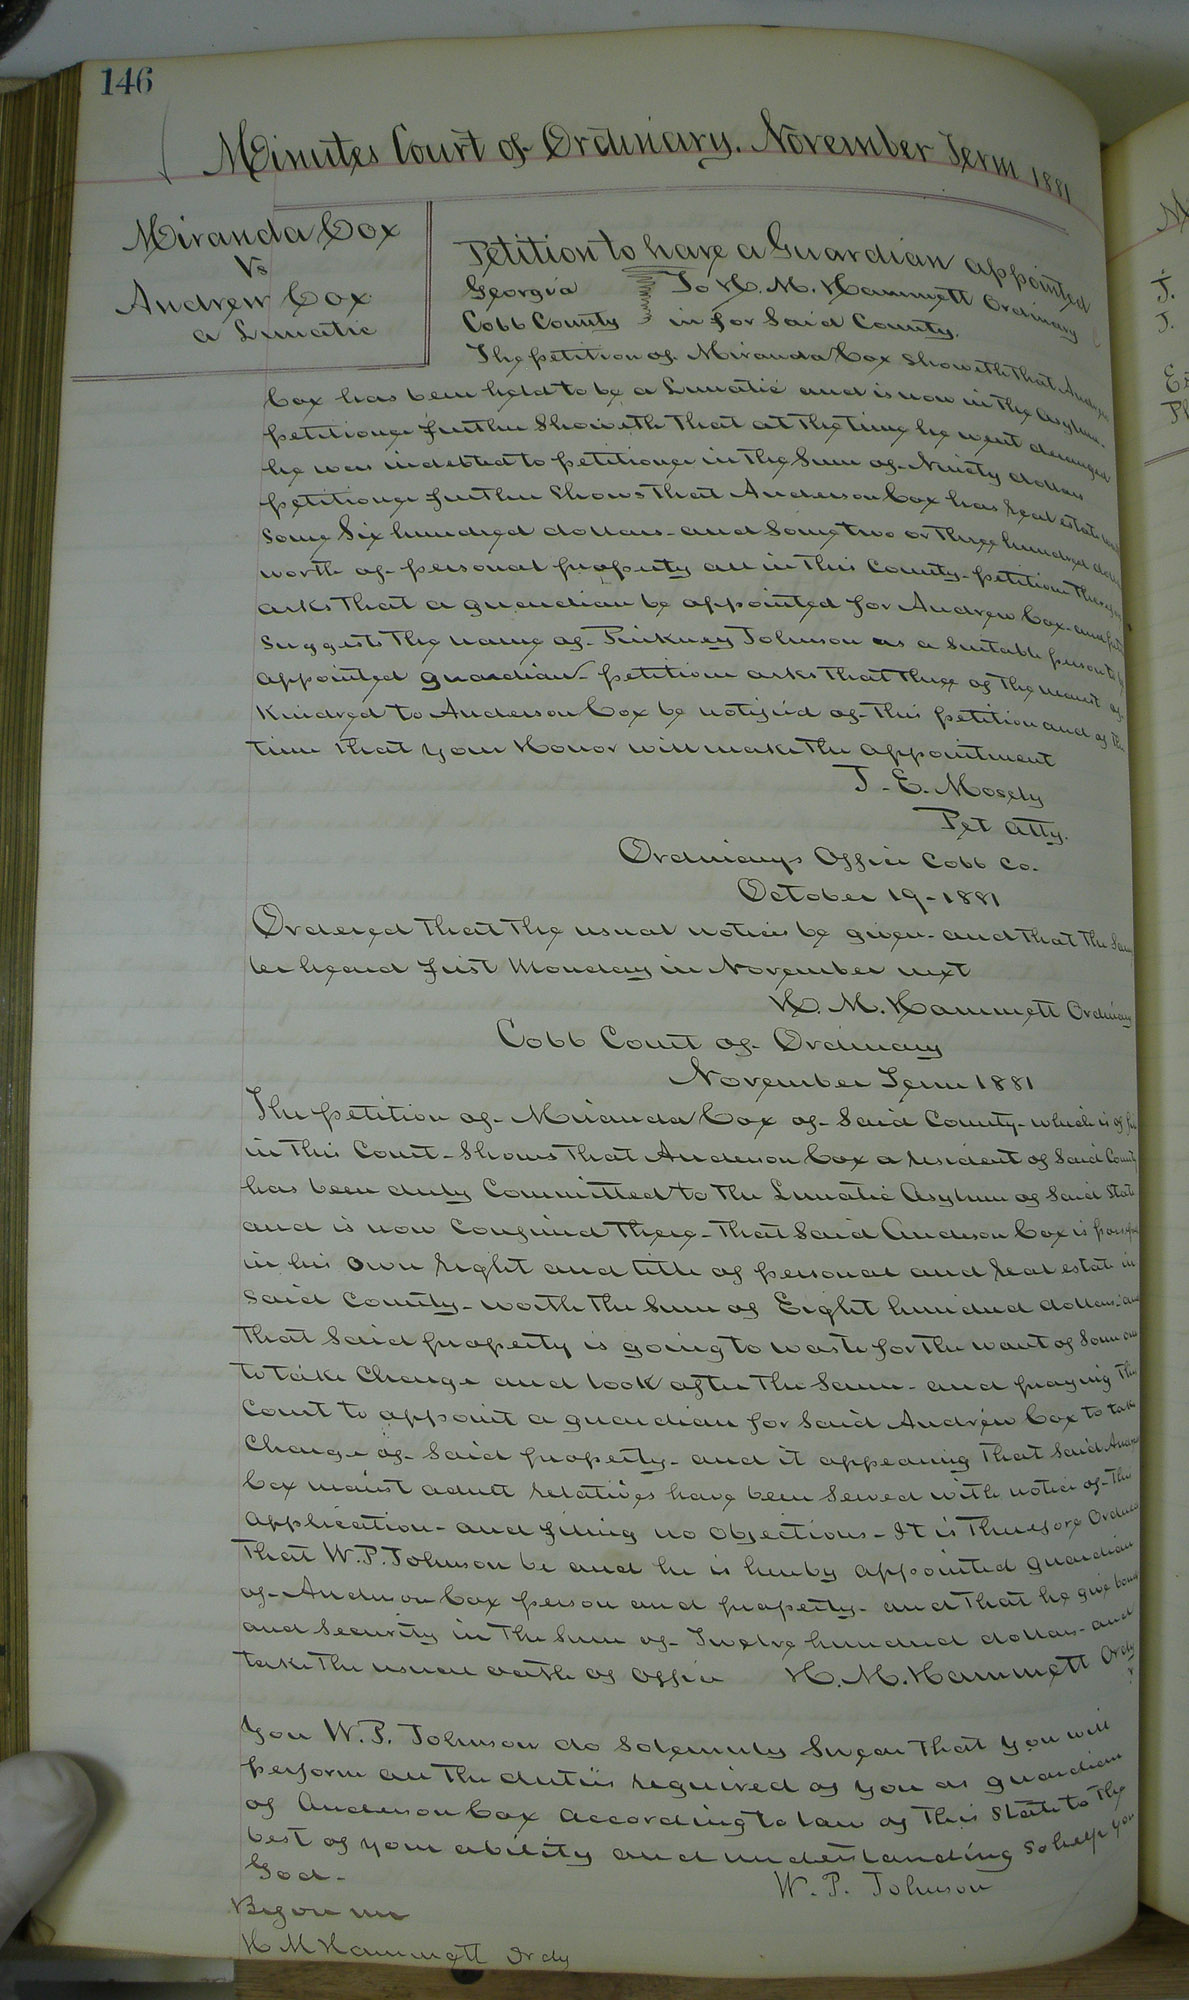 146
Minutes Court of Ordinary. November Term 1881
Miranda Cox
Vs
Andrew Cox
a Lunatic
Petition to have a Guardian appointed
Georgia To H. M. Hammett Ordinary
Cobb County in for Said County.
The petition of Miranda Cox Showeth that
Cox has been held to be a Lunatic and is now in the Asylum.
petitioner further Showeth that at the time he went deranged
he was indebted to petitioner in the Sum of Ninety dollars
petitioner further Shows that Anderson Cox has real estate
Some Six hundred dollars and Some two or three hundred
worth of personal property all in this County petitioner
asks that a guardian be appointed for Andrew Cox and
Suggests the name of Pinkney Johnson as a Suitable person to be
appointed guardian petitioner asks that three of the nearest of
Kindred to Anderson Cox be notified of this petition and of the
time that your Honor will make the appointment
J. E. Mosely
Pet Atty.
Ordinarys Office Cobb Co.
October 19-1881
Ordered that the usual notice be given and that the Same
be heard first Monday in November next
H. M. Hammett Ordinary
Cobb Court of Ordinary
November Term 1881
The petition of Miranda Cox of Said County which is of file
in this Court Shows that Anderson Cox a resident of Said County
has been duly Committed to the Lunatic Asylum of Said State
and is now Confined there that Said Anderson Cox is
in his own right and title of personal and real estate in
Said County worth the Sum of Eight hundred dollars and
that Said property is going to waste for the want of Some one
to take Charge and look after the Same and praying the
Court to appoint a guardian for Said Andrew Cox to take
Charge of Said property and it appearing that Said
Cox nearest adult relatives have been Served with notice of this
application and filing no objections It is Therefore Ordered
That W. P. Johnson be and he is hereby appointed guardian
of Anderson Cox person and property and that he give bond
and Security in the Sum of Twelve hundred dollars and
take the usual oath of office H. M. Hammett Ordy
You W. P. Johnson do Solemnly Swear that you will
perform all the duties required of you as guardian
of Anderson Cox according to law of this State to the
best of your ability and understanding So help you
God.
W. P. Johnson
Before me
H M Hammett Ordy